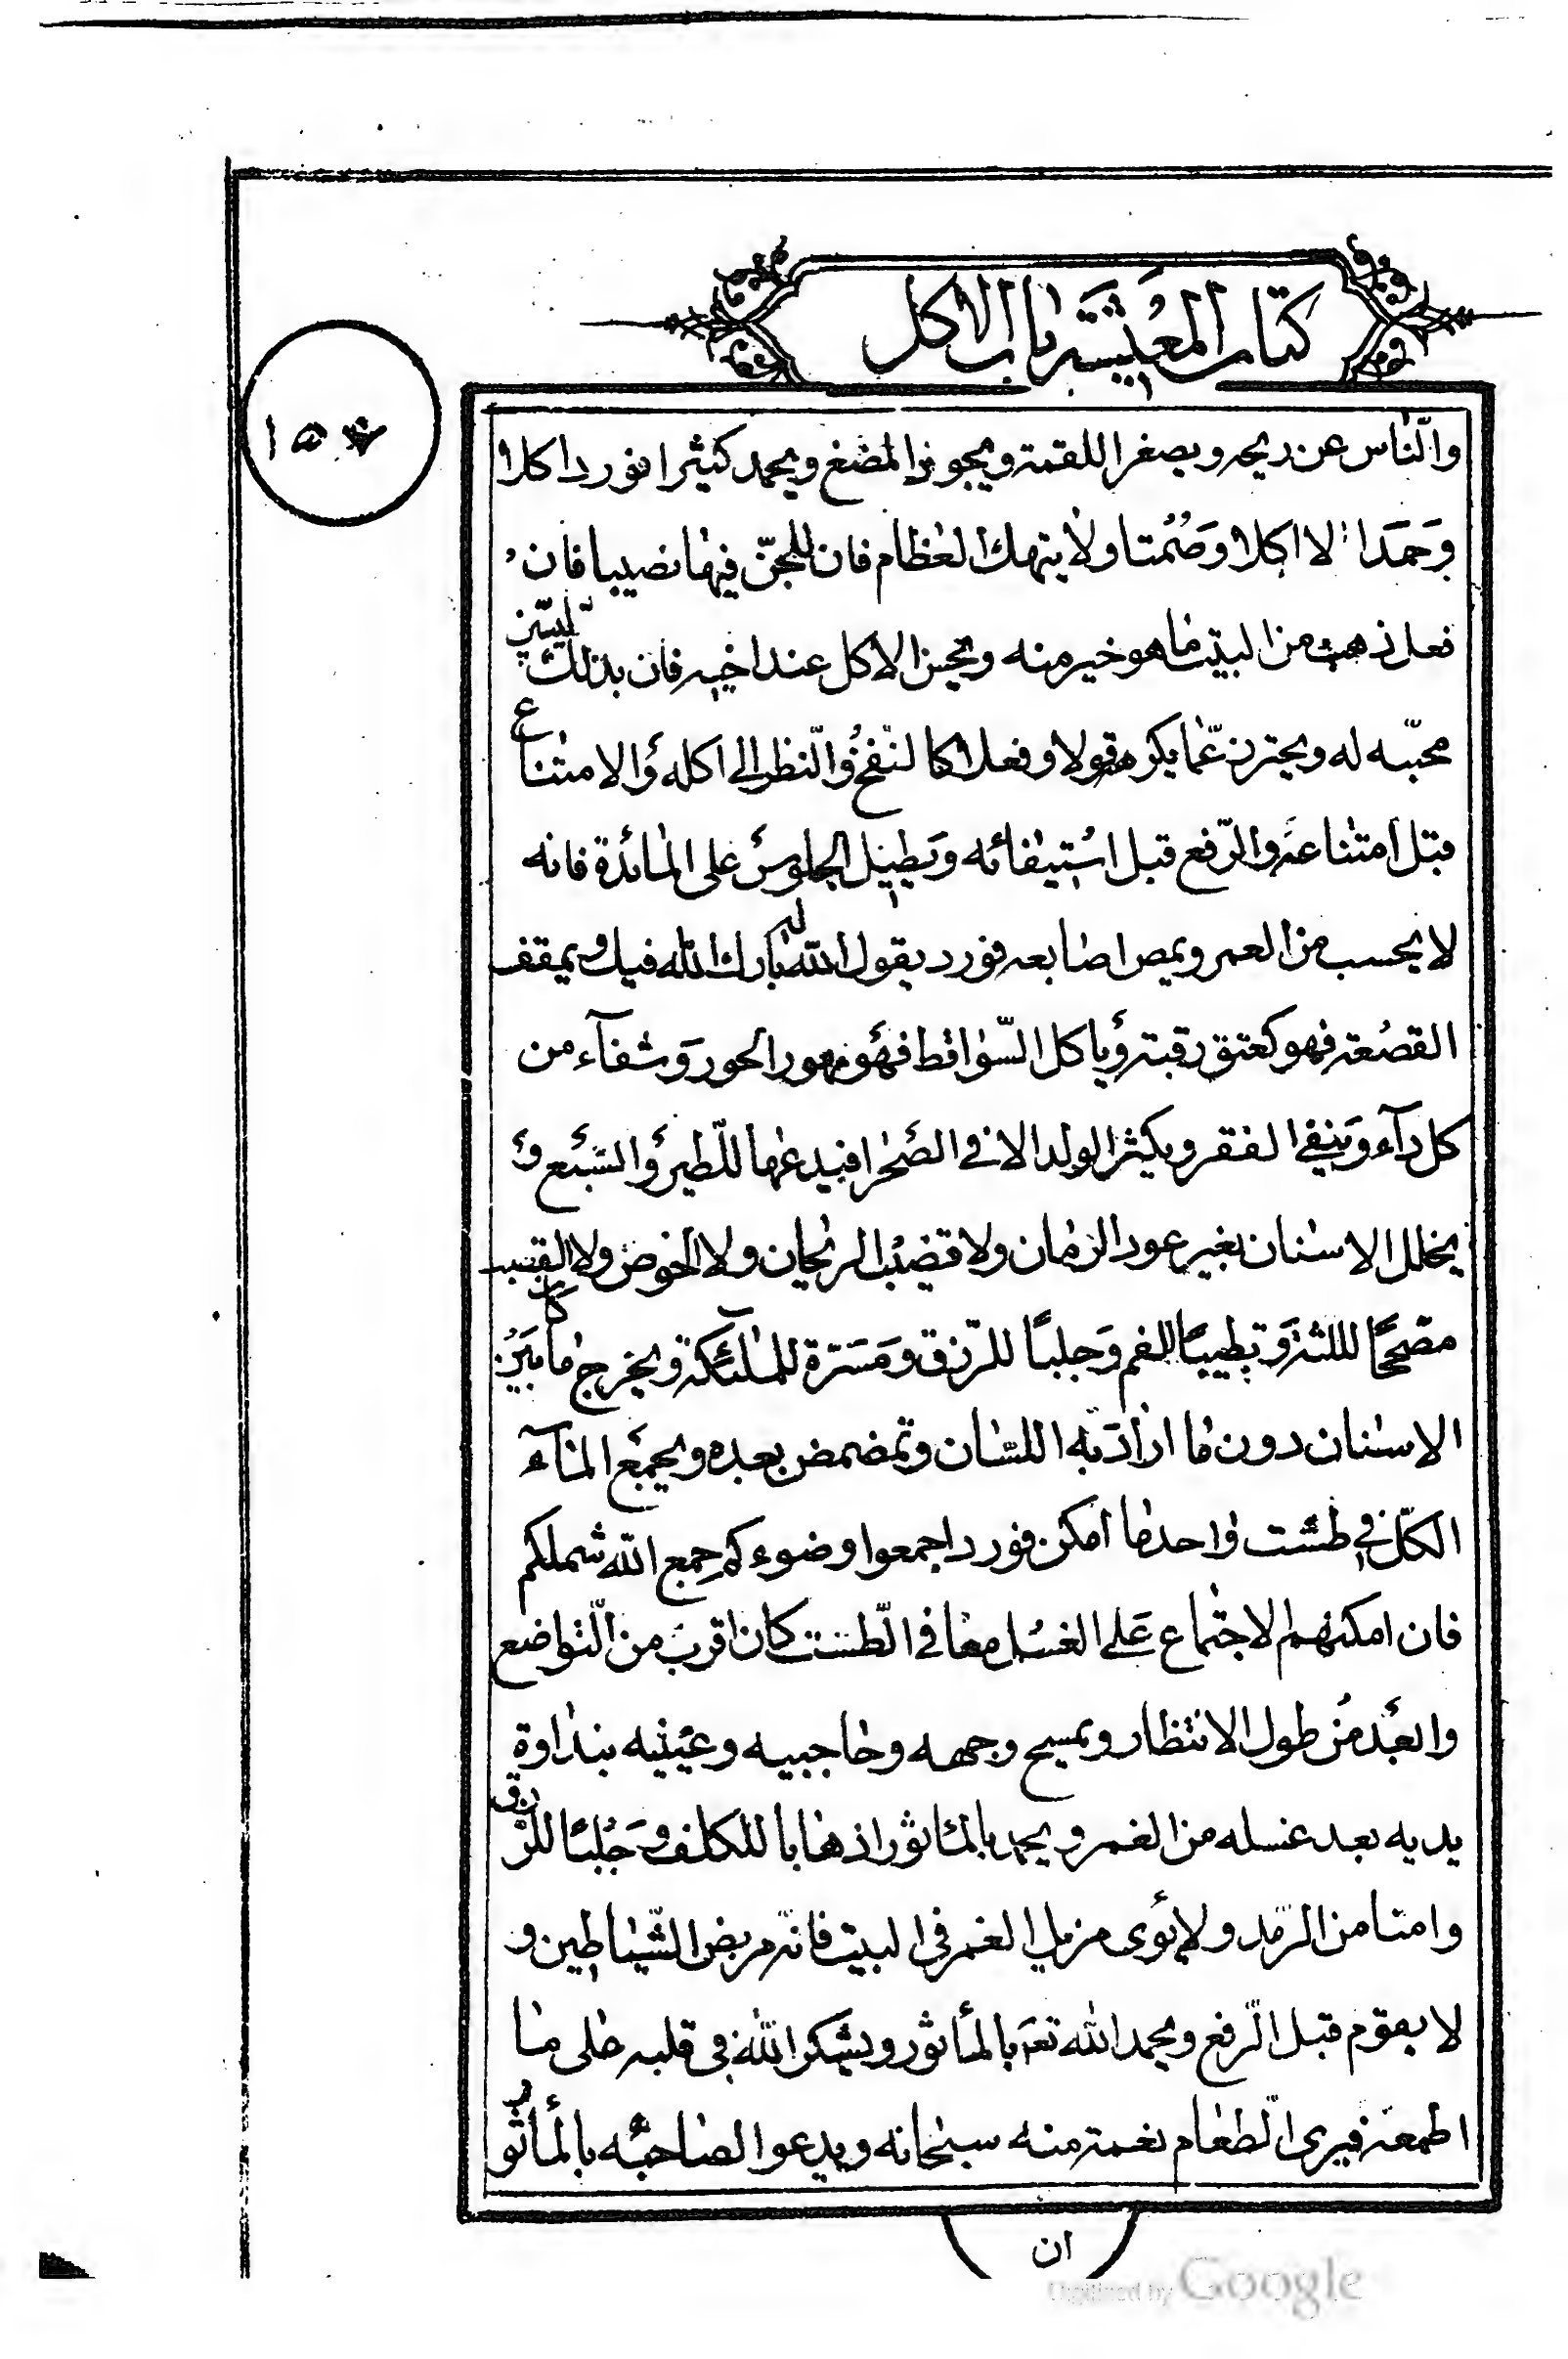 كتاب المعيشة باب الاكل
١٥٤
والنّاس عن ريحه ويصغر اللقمة ويجود المضغ ويحمد كثيرا فورد اكلا
وَحَمَدا لا اكلا وَصُمتا ولا ينهك العظام فان للجنّ فيها نصيبا فان
فعل ذهب من البيت ما هو خير منه ويحسن الاكل عند اخيه فان بذلك يتبيّن
محبّته له ويحترز عمّا يكره قولا وفعلا كالنّفخ والنّظر الى اكله والامتناع
قبل امتناعه والرّفع قبل استيفائه ويطيل الجلوس على المائدة فانه
لا يحسب من العمر ويمص اصابعه فورد يقول الله له بارك الله فيك ويمقف
القصعة فهو كعتق رقبة ويأكل السّواقط فهو مهور الحور وشفآء من
كل دآء وينفي الفقر ويكثر الولد الا في الصّحرا فيدعها للّطير والسّبع و
يخلل الاسنان بغير عود الرمان ولا قضيب الريحان ولا الخوص ولا القصب
مصّححًا لللثة وتطييبًا للفم وَجلبًا للرّزق ومَسَرّة للملآئكة ويخرج ما بين
الاسنان دون ما ادارَ به اللسان وتمضمض بعده ويجمع المآء
الكلّ في طشت واحد ما امكن فورد اجمعوا وضوءكم جمع الله شملكم
فان امكنهم الاجتماع على الغسل معا في الطّشت كان اقرب من التّواضع
وابعد من طول الانتظار ويمسح وجهه وحاجبيه وعينيه بنداوة
يديه بعد غسله من الغمر ويحمد بالمأثور اذهابا للكلف وجَلبًا للرّزق
وامنا من الرّمد ولا يؤوى منديل الغمر في البيت فانّه مربض الشّياطين و
لا يقوم قبل الرّفع ويحمد الله تعَ بالمأثور ويشكر الله في قلبه على ما
اطعمه فيرى الطّعام نعمة منه سبحانه ويدعو الصاحبه بالمأثور
ان
Digitized by Google